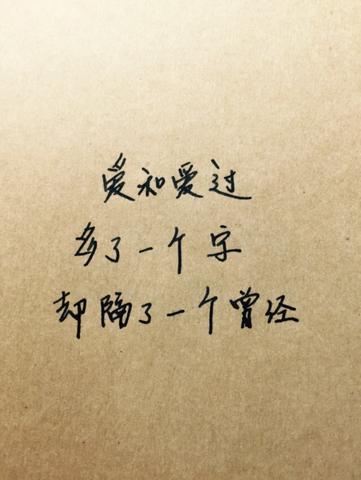 爱和爱过
多了一个字
却隔了一个曾经